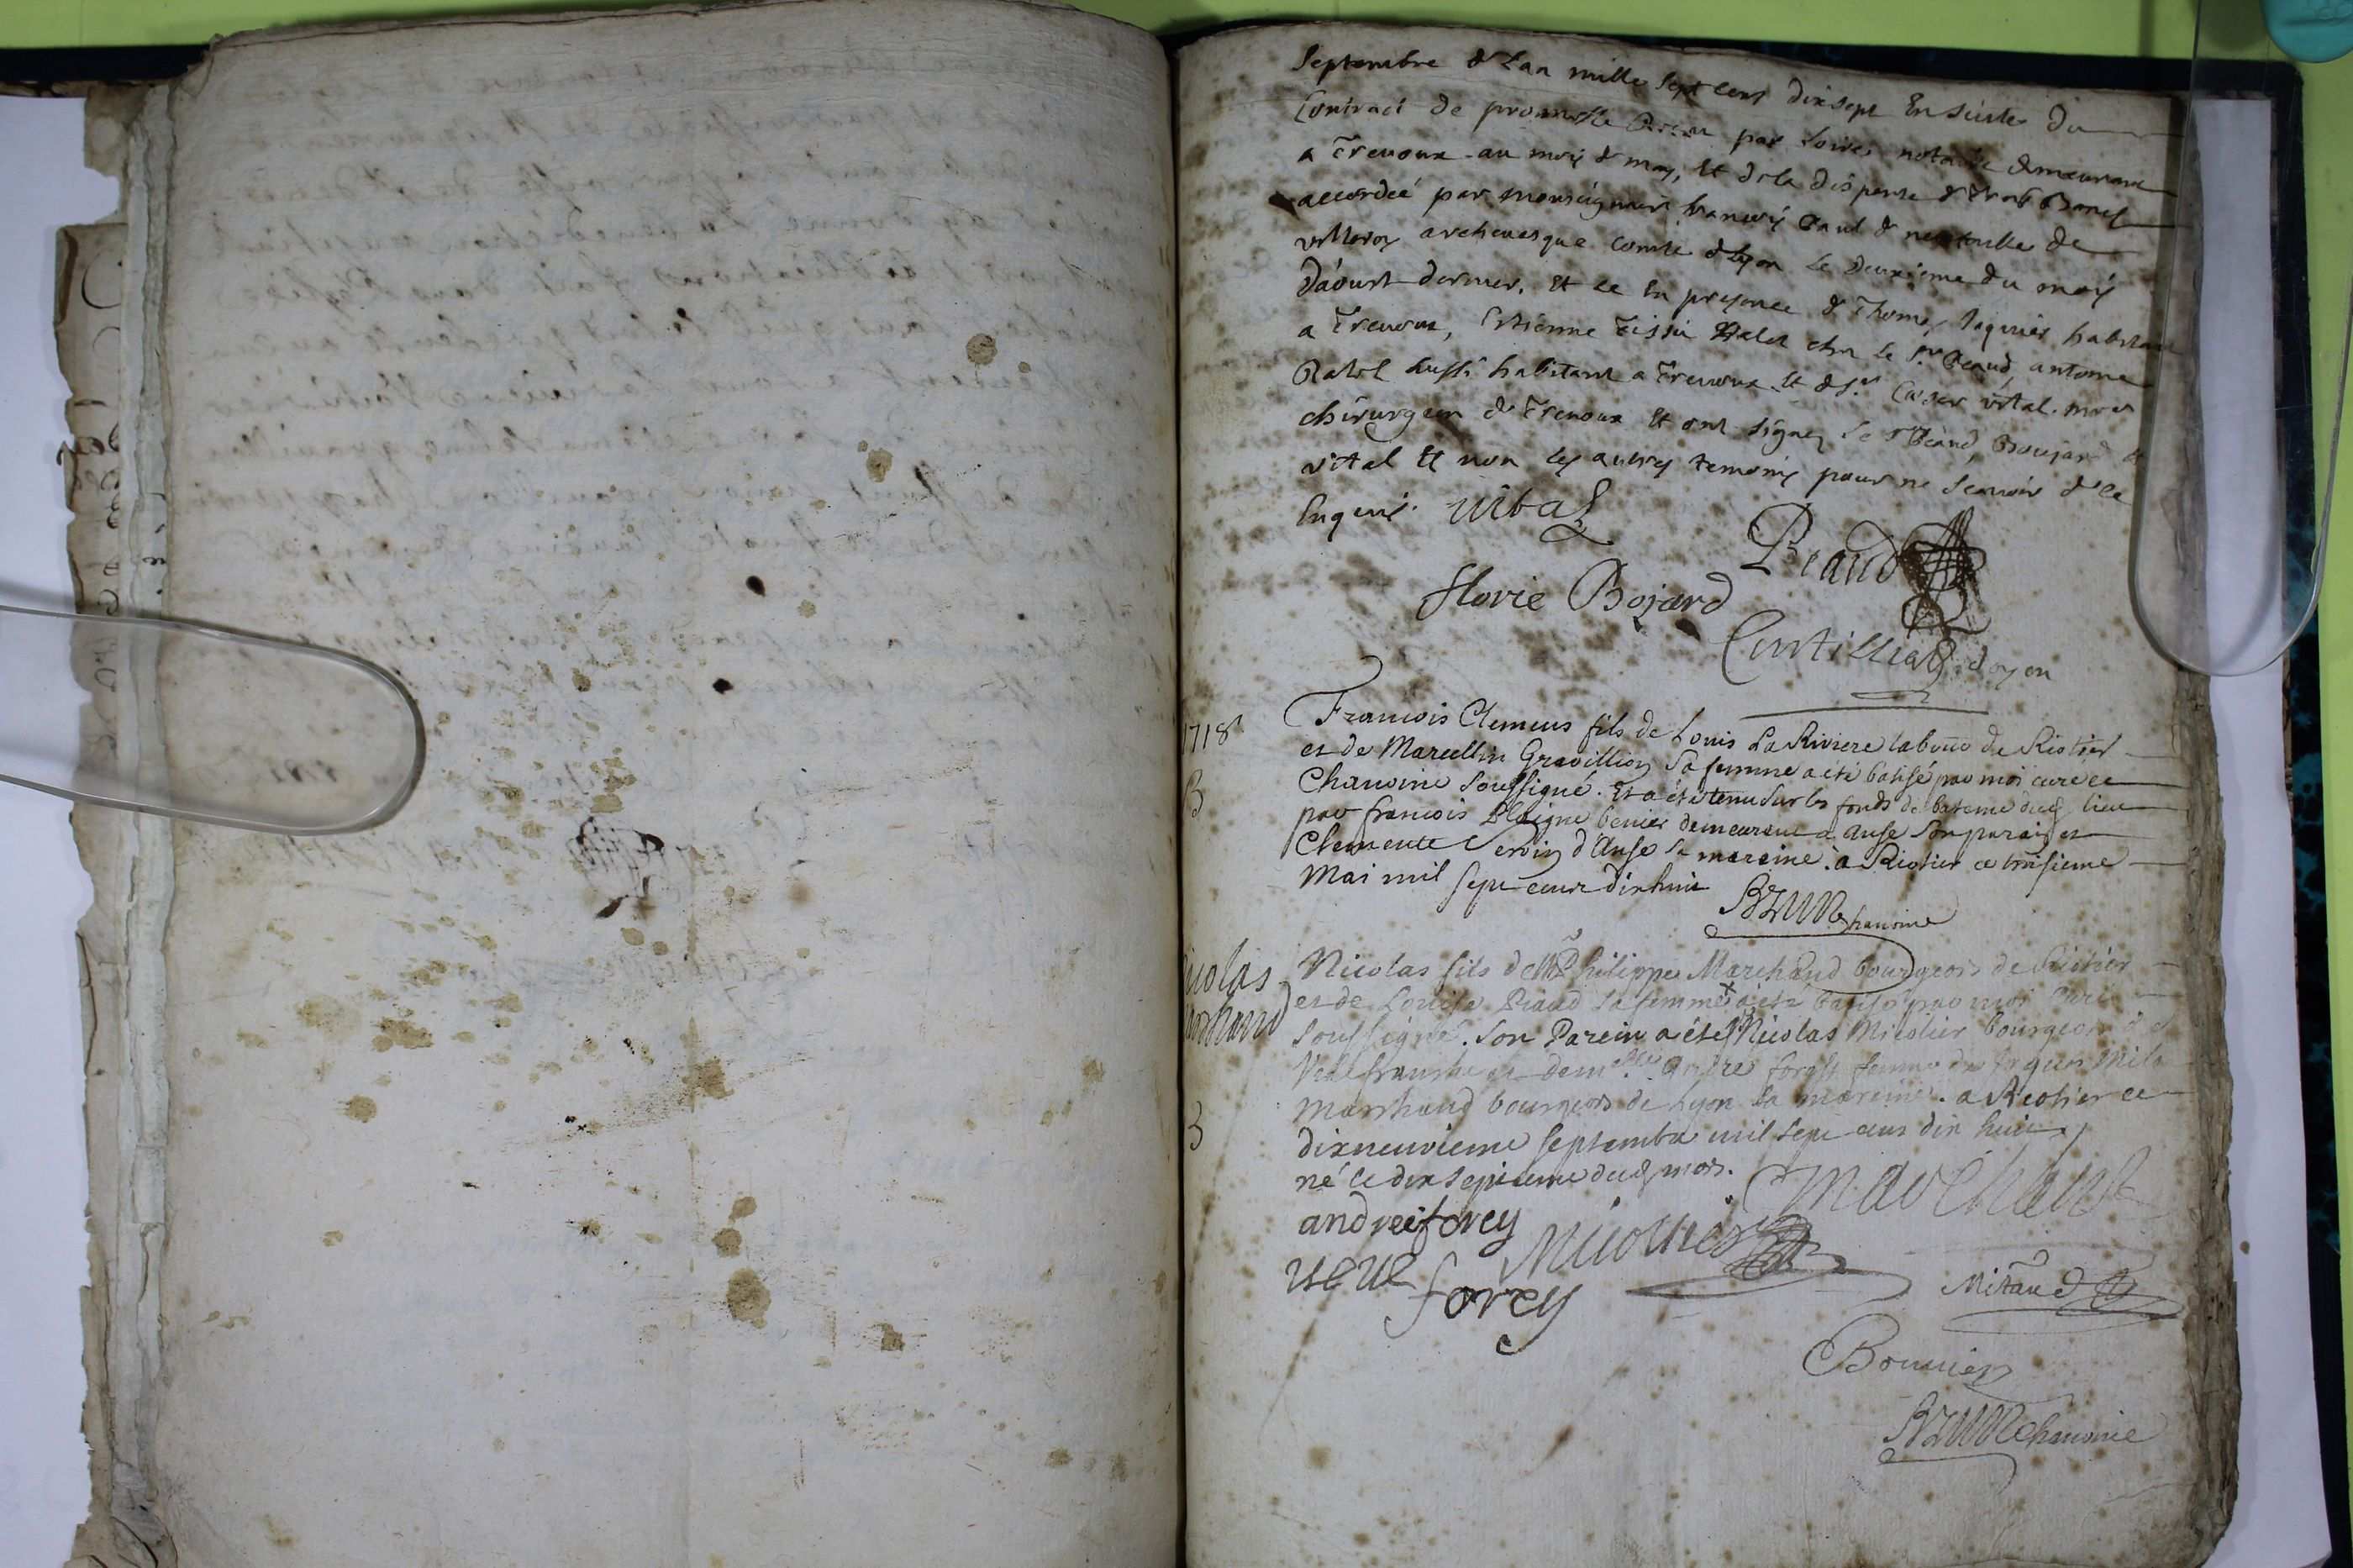 Septembre de l'an mille sept cent dix sept En suitte du
Contract de promesse par notaire demeurant
a Trevoux au mois de may, et de la dispense de trois Bancs
accordée par monseigneur francois Paul de neufville de
villeroy archevesque comte de Lyon le deuxieme du mois
d'aoust dernier. Et ce En presence de Thomas Jaquier habitant
a Trevoux, Estienne Tissi valet ches le Sr Beaud, antoine
Ratol aussi habitant a Trevoux et de Sr vital mre
chirurgien de Trevoux et ont signez le Sr Beaud, Boujard et
vital et non les autres temoins pour ne scavoir de ce
Enquis. vital
Beaud
florie Bojard
Cortillias doyen
1718
Francois Clemens fils de Louis La Riviere labour de Riotier
et de Marcelline Gravillion sa femme a été batisé par moi curé et
B
Chanoine soussigné. Et a été tenu sur les fonds de bateme dud lieu
par francois Plaigne demeurant a Anse son parain et
Clemente d'Anse sa maraine. a Riotier ce troisieme
Mai mil sept cent dix huit
BRUN chanoine
Nicolas
Marchand
Nicolas fils de Mr Philippe Marchand bourgeois de Riotier
et de Louise Beaud sa femme a été batisé par moi Curé
soussigné. Son Parein a été Nicolas Micolier bourgeois de
Villefranche et demlle Andre forest femme de
Marchand bourgeois de Lyon la mareine. a Riotier ce
B
dixneuvieme septembre mil sept cens dix huit
né le dix septieme dud mois.
marchand
andree forey
Micollier
veuve forey
Mitaud
Bouvier
BRUN chanoine